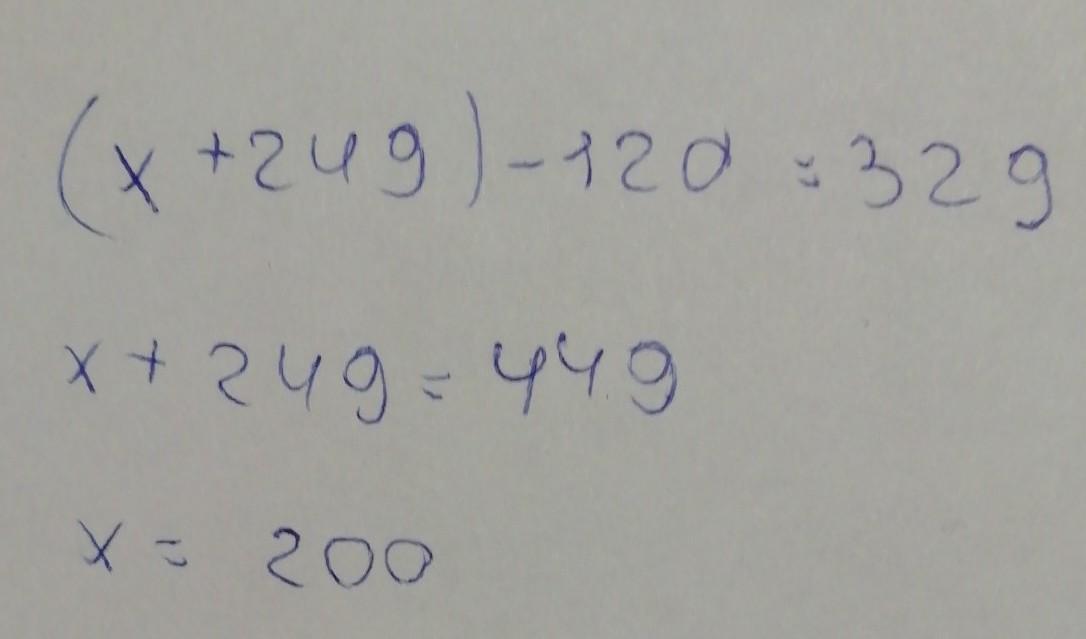 (x+249)-120=329
x+249=449
x=200